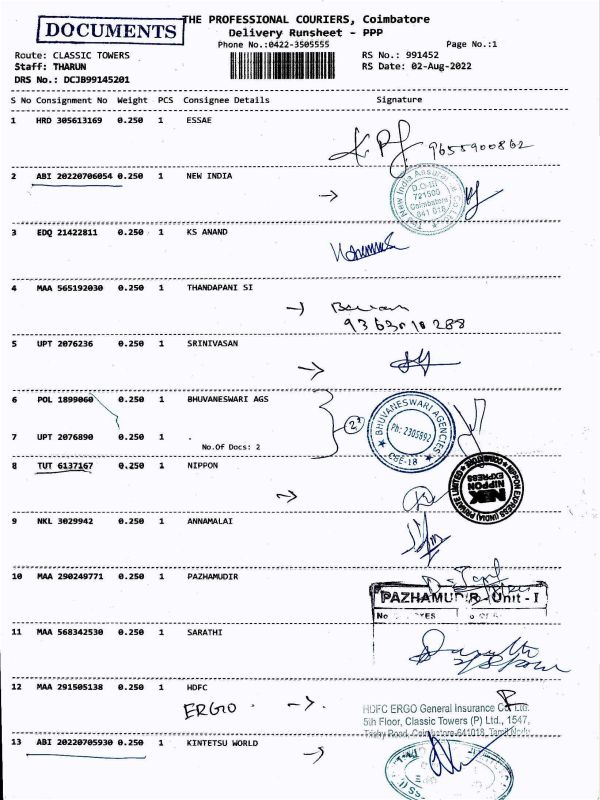 DOCUMENTS
THE PROFESSIONAL COURIERS, Coimbatore
Delivery Runsheet - PPP
Phone No.:0422-3505555
Page No.:1
Route: CLASSIC TOWERS
RS No.: 991452
Staff: THARUN
RS Date: 02-Aug-2022
DRS No.: DCJB99145201
S No Consignment No Weight PCS Consignee Details Signature
1 HRD 305613169 0.250 1 ESSAE
9655900862
2 ABI 20220706054 0.250 1 NEW INDIA
The New India Assurance Co Ltd
D.O-III
721500
Coimbatore
641 018
3 EDQ 21422811 0.250 1 KS ANAND
4 MAA 565192030 0.250 1 THANDAPANI SI
9363010288
5 UPT 2076236 0.250 1 SRINIVASAN
6 POL 1899060 0.250 1 BHUVANESWARI AGS
BHUVANESWARI AGENCIES
Ph: 2305892
CBE-18
7 UPT 2076890 0.250 1 .
No.Of Docs: 2
8 TUT 6137167 0.250 1 NIPPON
NIPPON EXPRESS (INDIA) PRIVATE LIMITED
COIMBATORE
NIPPON
EXPRESS
9 NKL 3029942 0.250 1 ANNAMALAI
10 MAA 290249771 0.250 1 PAZHAMUDIR
PAZHAMUDIR - Unit - I
No
11 MAA 568342530 0.250 1 SARATHI
12 MAA 291505138 0.250 1 HDFC
ERGO
HDFC ERGO General Insurance Co. Ltd.
5th Floor, Classic Towers (P) Ltd., 1547,
Trichy Road, Coimbatore-641018, Tamil Nadu
13 ABI 20220705930 0.250 1 KINTETSU WORLD